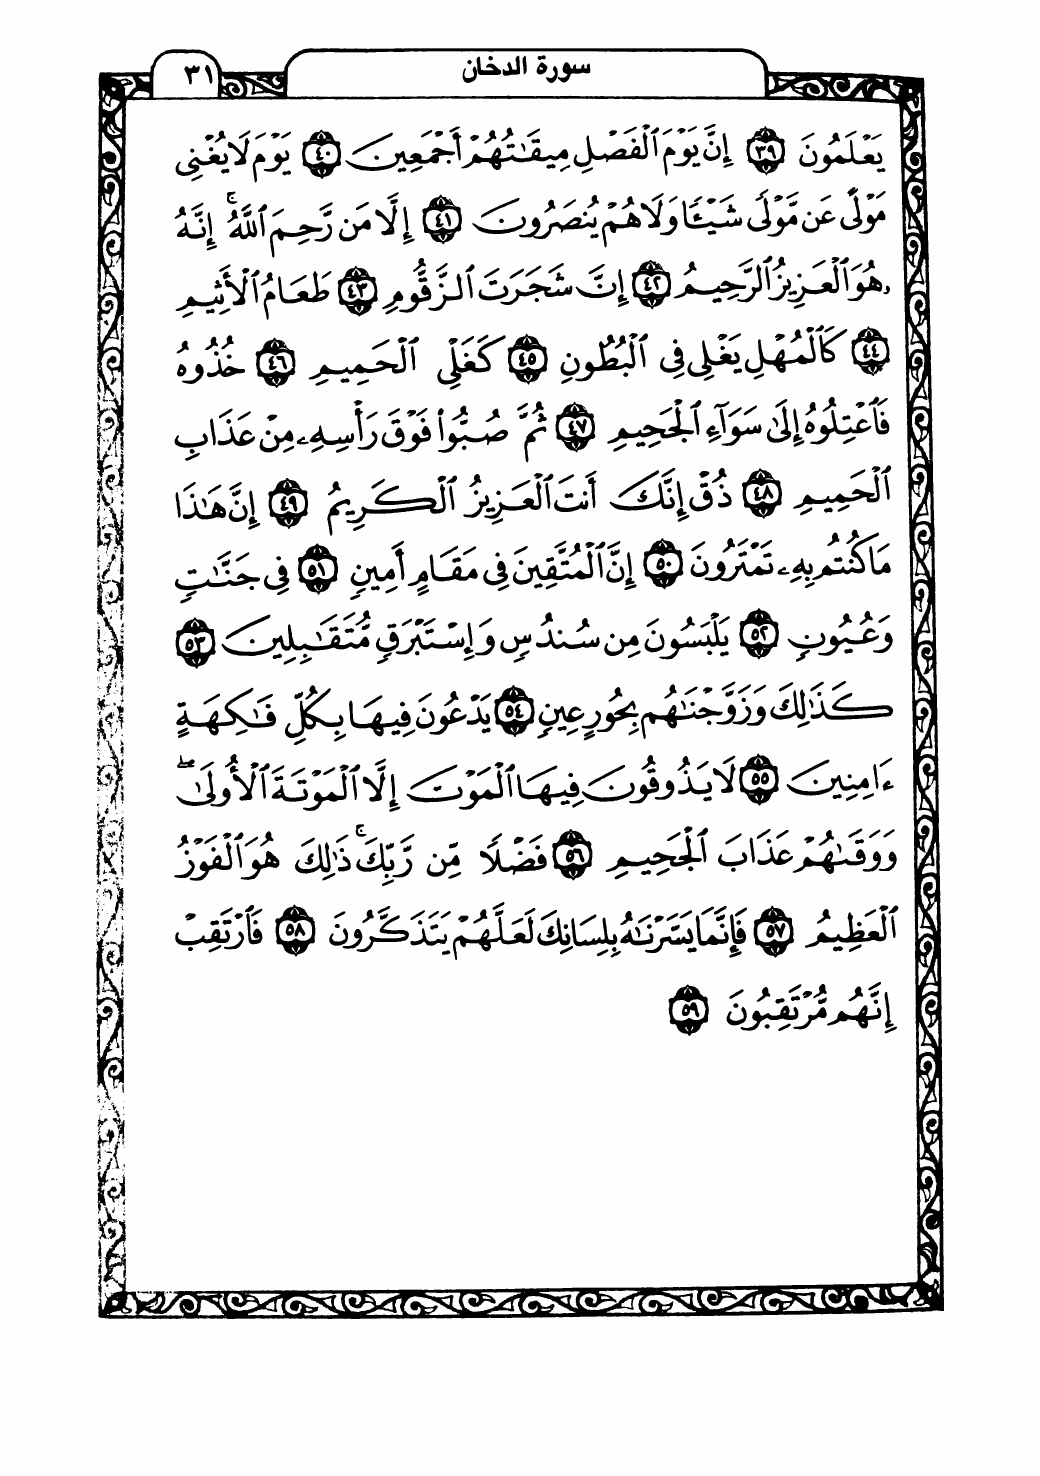 سورة الدخان ٣١
يَعْلَمُونَ ٣٩ إِنَّ يَوْمَ ٱلْفَصْلِ مِيقَٰتُهُمْ أَجْمَعِينَ ٤٠ يَوْمَ لَا يُغْنِى
مَوْلًى عَن مَّوْلًى شَيْـًٔا وَلَا هُمْ يُنصَرُونَ ٤١ إِلَّا مَن رَّحِمَ ٱللَّهُ ۚ إِنَّهُۥ
هُوَ ٱلْعَزِيزُ ٱلرَّحِيمُ ٤٢ إِنَّ شَجَرَتَ ٱلزَّقُّومِ ٤٣ طَعَامُ ٱلْأَثِيمِ
٤٤ كَٱلْمُهْلِ يَغْلِى فِى ٱلْبُطُونِ ٤٥ كَغَلْىِ ٱلْحَمِيمِ ٤٦ خُذُوهُ
فَٱعْتِلُوهُ إِلَىٰ سَوَآءِ ٱلْجَحِيمِ ٤٧ ثُمَّ صُبُّوا۟ فَوْقَ رَأْسِهِۦ مِنْ عَذَابِ
ٱلْحَمِيمِ ٤٨ ذُقْ إِنَّكَ أَنتَ ٱلْعَزِيزُ ٱلْكَرِيمُ ٤٩ إِنَّ هَٰذَا
مَا كُنتُم بِهِۦ تَمْتَرُونَ ٥٠ إِنَّ ٱلْمُتَّقِينَ فِى مَقَامٍ أَمِينٍ ٥١ فِى جَنَّٰتٍ
وَعُيُونٍ ٥٢ يَلْبَسُونَ مِن سُندُسٍ وَإِسْتَبْرَقٍ مُّتَقَٰبِلِينَ ٥٣
كَذَٰلِكَ وَزَوَّجْنَٰهُم بِحُورٍ عِينٍ ٥٤ يَدْعُونَ فِيهَا بِكُلِّ فَٰكِهَةٍ
ءَامِنِينَ ٥٥ لَا يَذُوقُونَ فِيهَا ٱلْمَوْتَ إِلَّا ٱلْمَوْتَةَ ٱلْأُولَىٰ ۖ
وَوَقَىٰهُمْ عَذَابَ ٱلْجَحِيمِ ٥٦ فَضْلًا مِّن رَّبِّكَ ۚ ذَٰلِكَ هُوَ ٱلْفَوْزُ
ٱلْعَظِيمُ ٥٧ فَإِنَّمَا يَسَّرْنَٰهُ بِلِسَانِكَ لَعَلَّهُمْ يَتَذَكَّرُونَ ٥٨ فَٱرْتَقِبْ
إِنَّهُم مُّرْتَقِبُونَ ٥٩